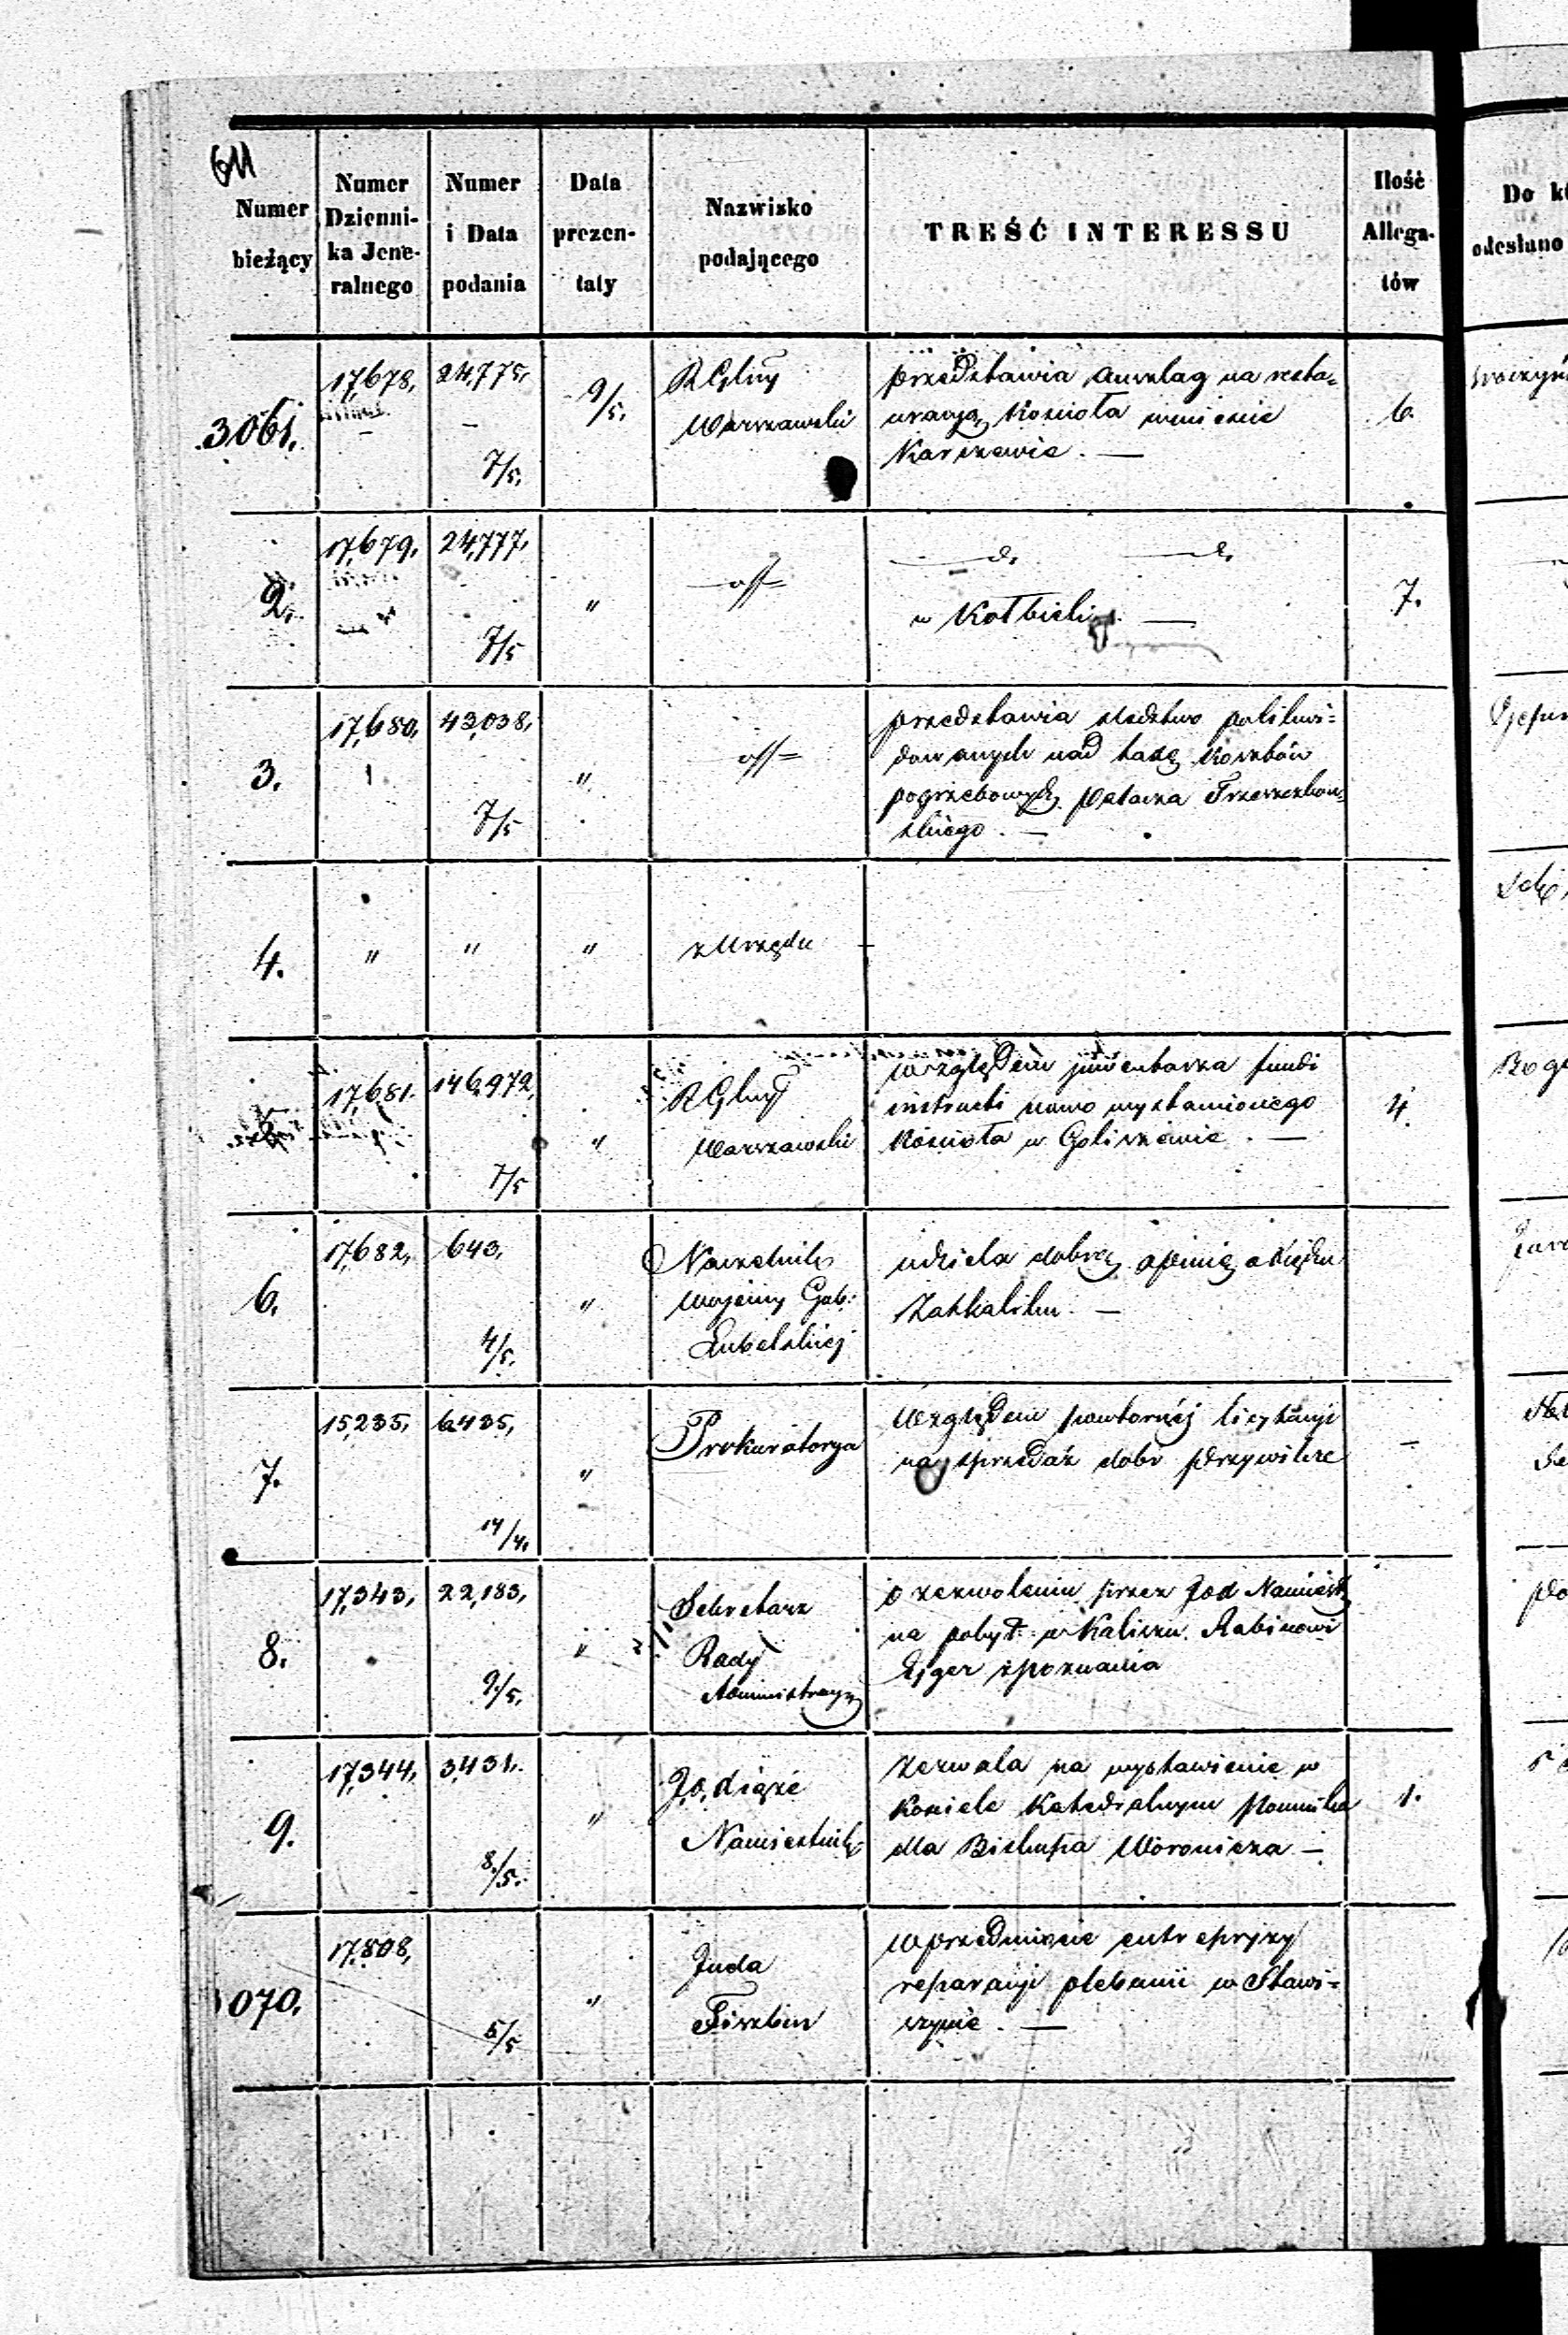 611
Numer bieżący
Numer Dzienni- ka Jene- ralnego
Numer i Data podania
Data prezen- taty
Nazwisko podającego
TREŚĆ INTERESSU
Ilość Allega- tów
Do
odesłano
3061.
17,678,
24,775,
7/5,
9/5,
R Glny
Warszawski
przedstawia anszlag na resta-
uracyą Kościoła w mieście
Karczewie. —
6.
2.
17,679.
24,777,
7/5
"
w Kołbieli —
7.
3.
17,680,
43,038,
7/5
"
przedstawia
pogrzebowych
skiego. —
4.
"
"
"
z Urzędu
17,681.
146,972,
7/5
"
R Glny
Warszawski
względem inwentarza fundi
instructi nowo wystawionego
Kościoła w Goliszewie. —
4.
6.
17,682,
643,
4/5.
"
Naczelnik
Wojenny Gub:
Lubelskiej
udziela dobrą opinię o Księdzu
7.
15,235,
6435,
14/4.
"
Prokuratorya
Względem powtornéj licytacyi
na sprzedaż dobr
8.
17,343,
22,183,
9/5,
"
Sekretarz
Rady
Administracyj
o zezwoleniu przez
na pobyt w Kaliszu Rabinowi
Ejger z Poznania
9.
17,344,
3431.
8/5.
"
J.O. Xiąże
Namiestnik
zezwala na wystawienie w
Kosciele Katedralnym Pomnika
dla Biskupa Woronicza —
1.
070.
17,808,
5/5
"
Juda
Fiszbin
W przedmiocie entrepryzy
reparacyi plebanii w Stawi-
szynie. —